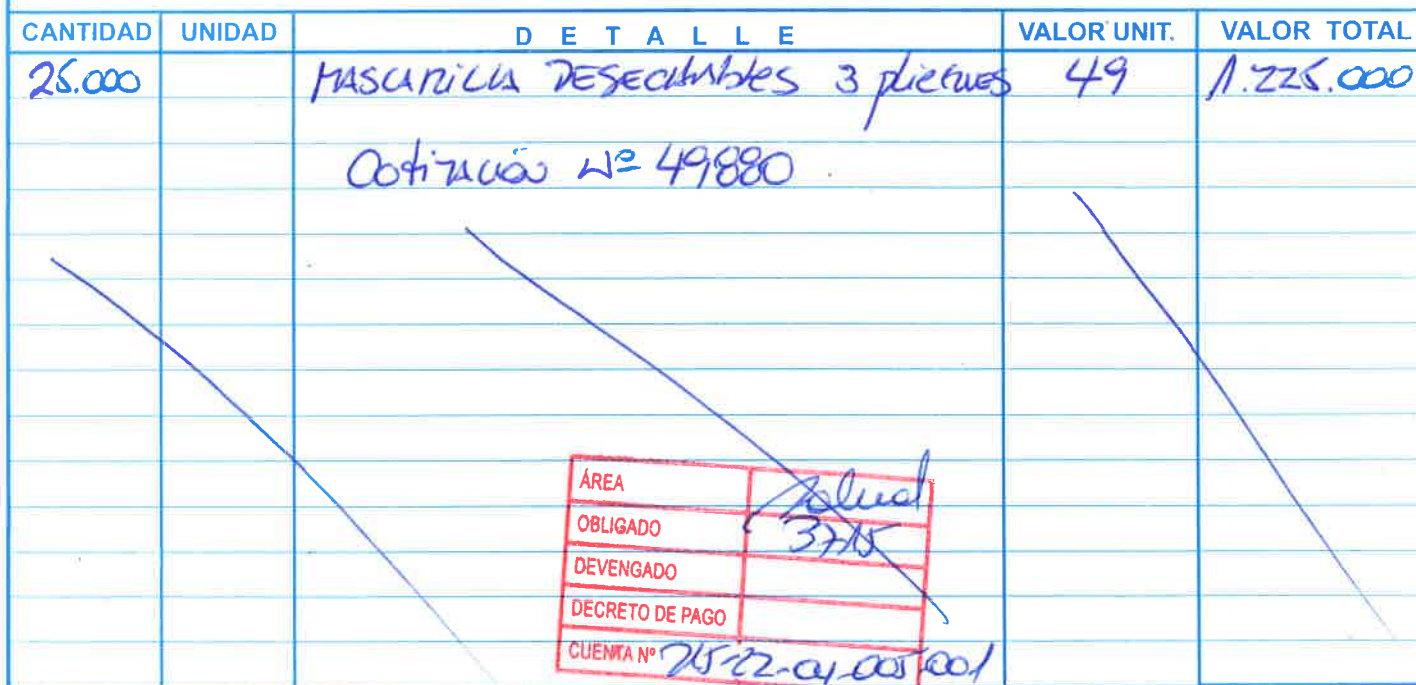 CANTIDAD UNIDAD DETALLE VALOR UNIT. VALOR TOTAL
25.000 MASCARILLA DESECHABLES 3 pliegues 49 1.225.000
Cotización Nº 49880
ÁREA Salud
OBLIGADO 3715
DEVENGADO
DECRETO DE PAGO
CUENTA Nº 215-22-04-005-001